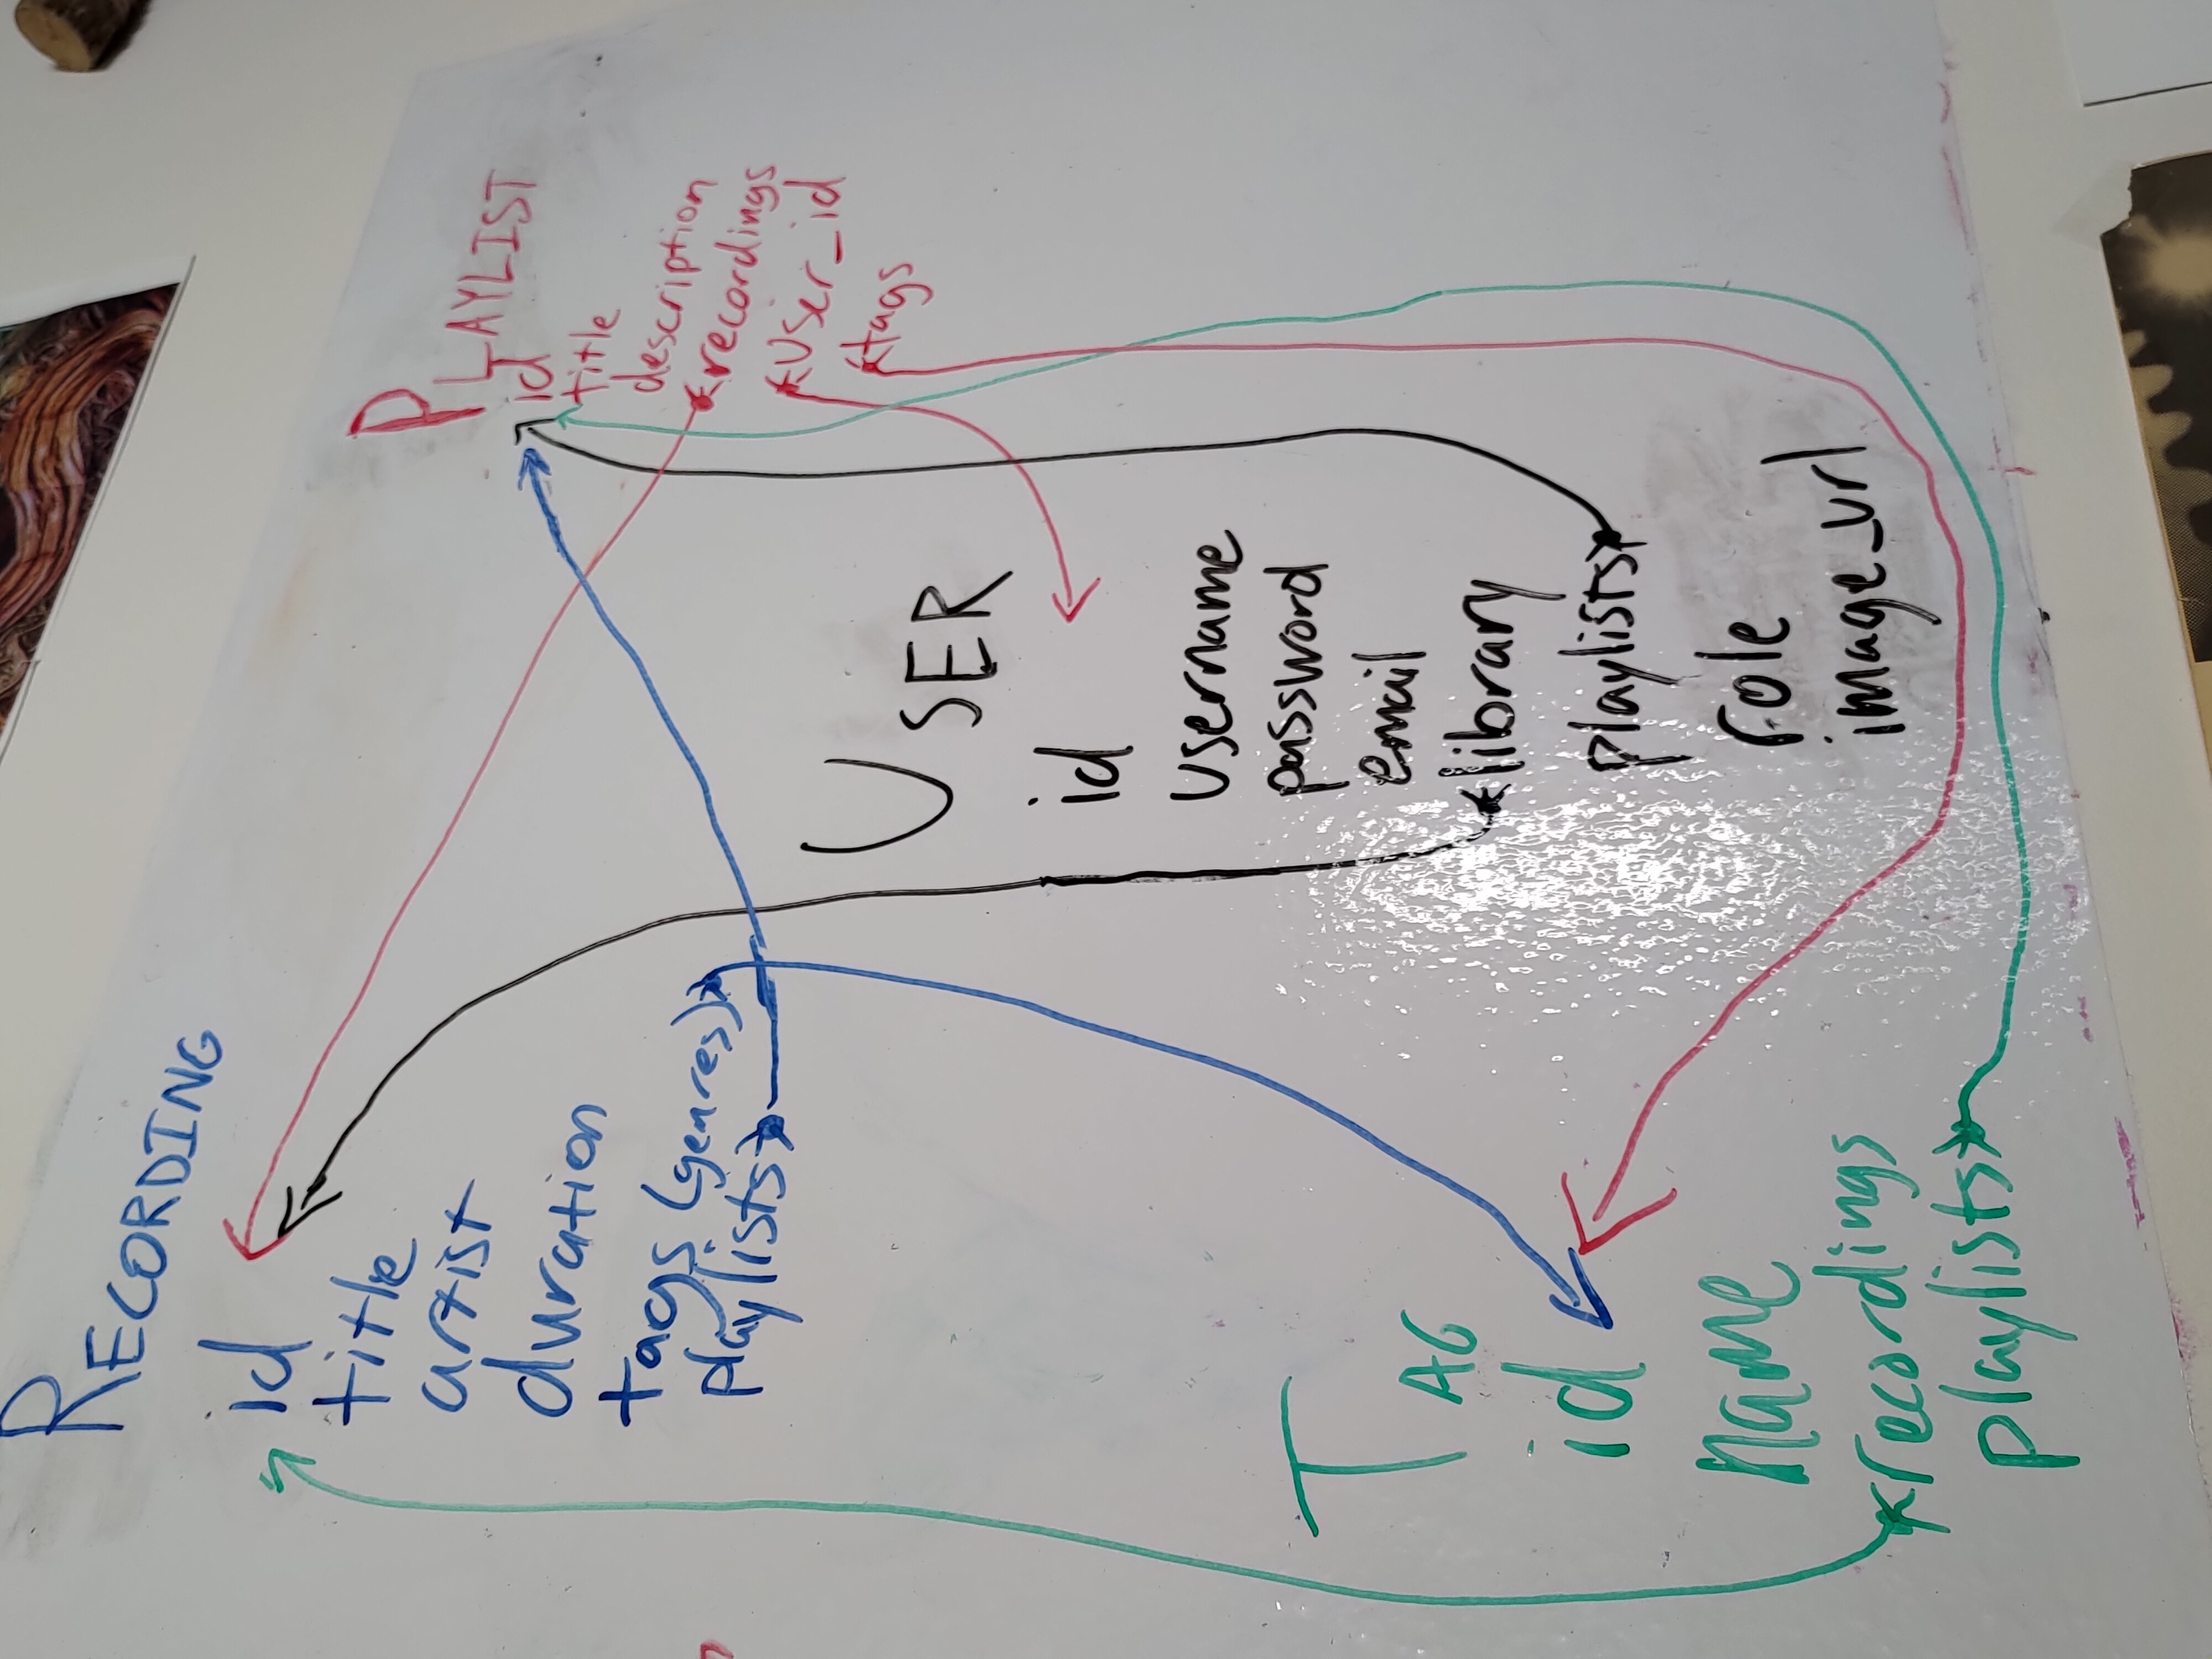 RECORDING
id
title
artist
duration
tags (genres)
playlists
PLAYLIST
id
title
description
recordings
user_id
tags
USER
id
username
password
email
library
playlists
role
image_url
TAG
id
name
recordings
playlists